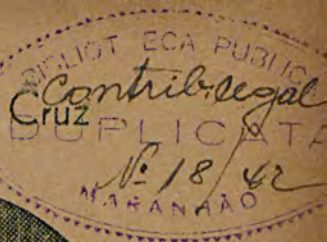 BIBLIOTECA PUBLICA
Contrib. legal
Cruz
DUPLICATA
Nº 18/42
MARANHÃO